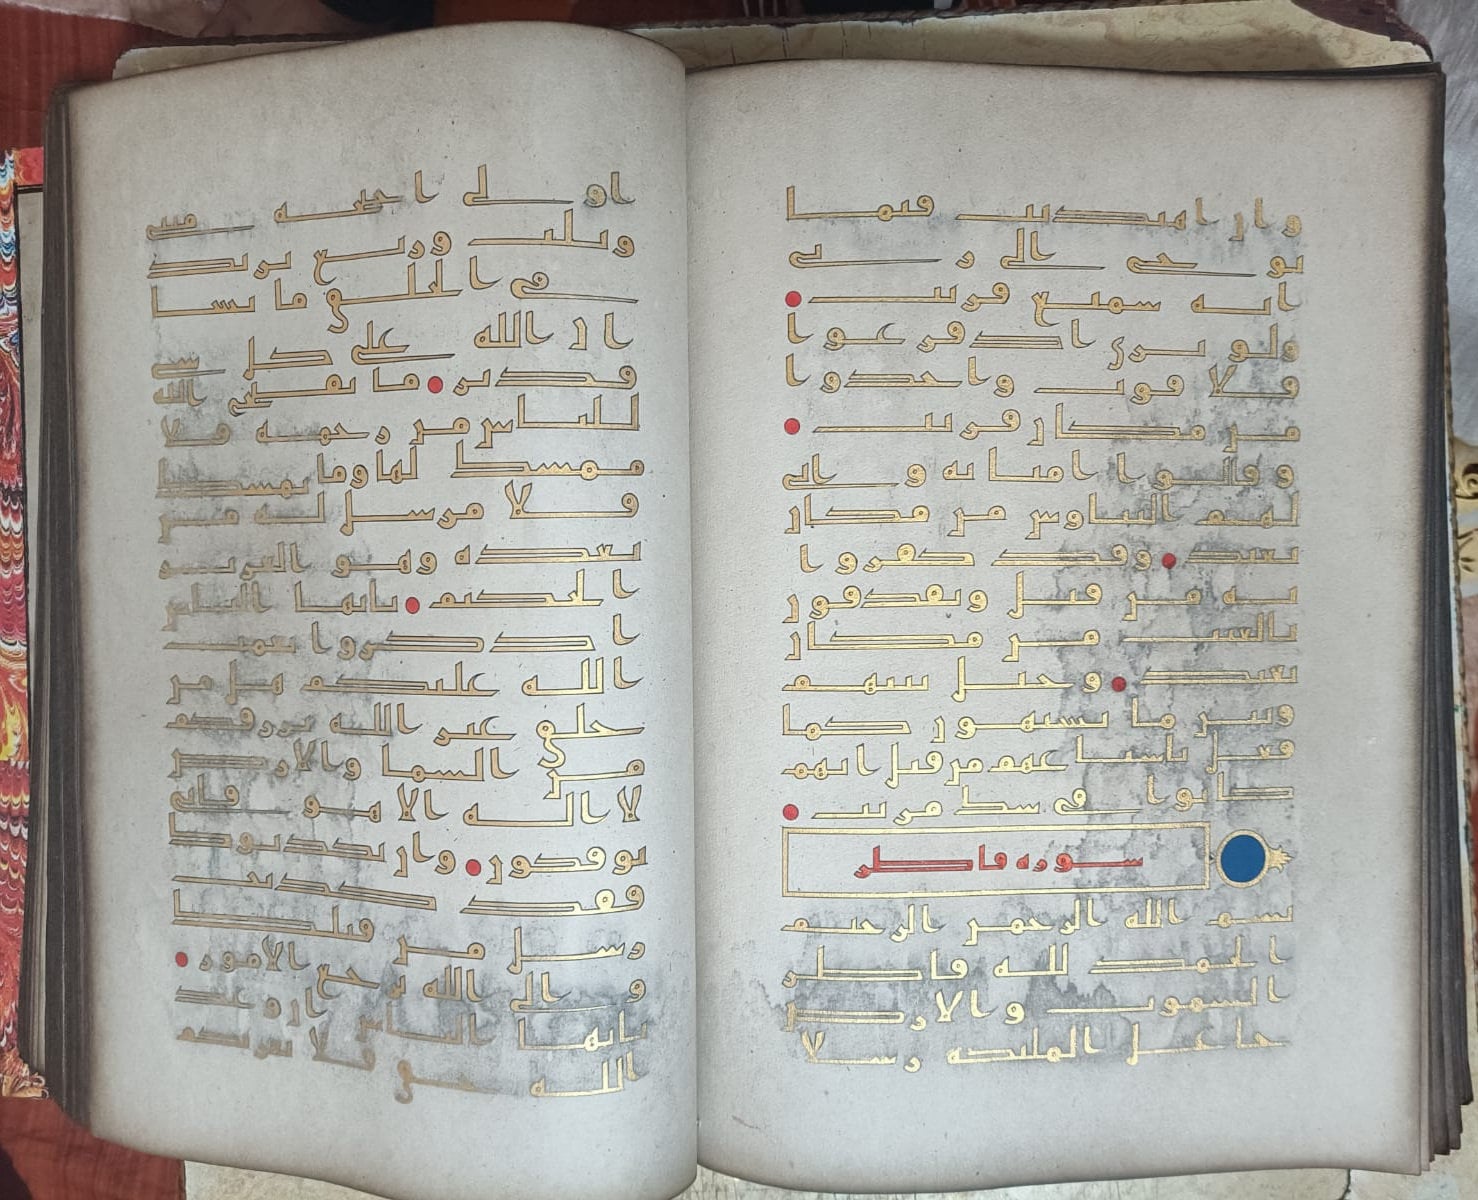 وان اهتديت فبما
يوحي الي ربي
انه سميع قريب
ولو ترى اذ فزعوا
فلا فوت واخذوا
من مكان قريب
وقالوا امنا به وانى
لهم التناوش من مكان
بعيد وقد كفروا
به من قبل ويقذفون
بالغيب من مكان
بعيد وحيل بينهم
وبين ما يشتهون كما
فعل باشياعهم من قبل انهم
كانوا في شك مريب
سورة فاطر
بسم الله الرحمن الرحيم
الحمد لله فاطر
السموت والارض
جاعل الملئكة رسلا
اولي اجنحة مثنى
وثلث وربع يزيد
في الخلق ما يشا
ان الله على كل شي
قدير ما يفتح الله
للناس من رحمة فلا
ممسك لها وما يمسك
فلا مرسل له من
بعده وهو العزيز
الحكيم يايها الناس
اذكروا نعمت
الله عليكم هل من
خلق غير الله يرزقكم
من السما والارض
لا اله الا هو فانى
توفكون وان يكذبوك
فقد كذبت
رسل من قبلك
والى الله ترجع الامور
يايها الناس ان وعد
الله حق فلا تغرنكم